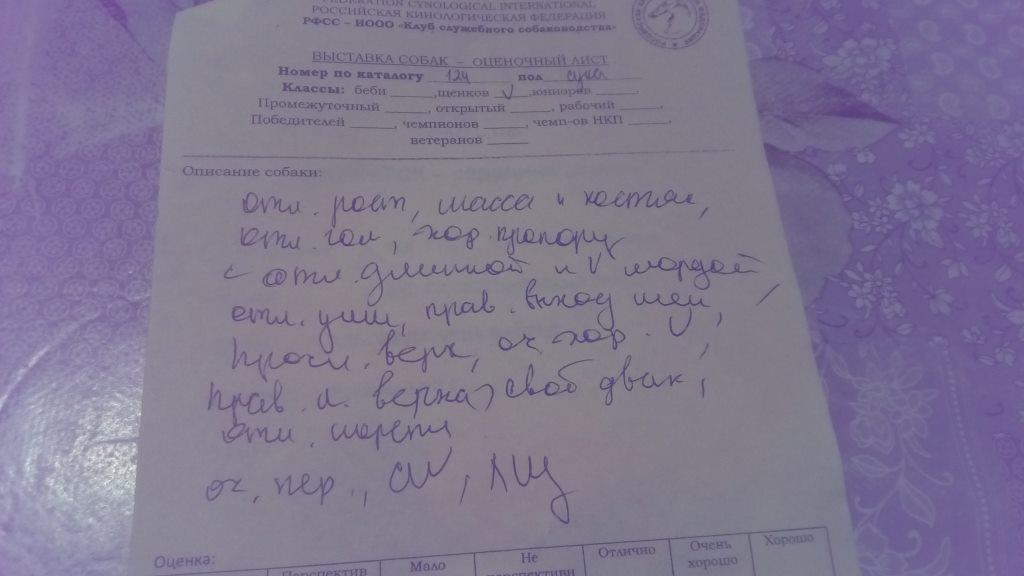 FEDERATION CYNOLOGICAL INTERNATIONAL
РОССИЙСКАЯ КИНОЛОГИЧЕСКАЯ ФЕДЕРАЦИЯ
РФСС – НООО «Клуб служебного собаководства»
ВЫСТАВКА СОБАК – ОЦЕНОЧНЫЙ ЛИСТ
Номер по каталогу 124 пол сука
Классы: беби ______,щенков __V__,юниоров ______,
Промежуточный ______, открытый ______, рабочий ______,
Победителей ______, чемпионов ______, чемп-ов НКП ______,
ветеранов ______
Описание собаки:
отл. рост, масса и костяк,
отл. гол, хор.
с отл. длинной и V мордой
отл. уши, прав. выход шеи,
прочн. верх, оч. хор.
прав. л. верха, своб движ,
отл. шерсти
оч. пер., CW, ЛЩ
Оценка:
Мало
Не
Отлично
Очень хорошо
Хорошо